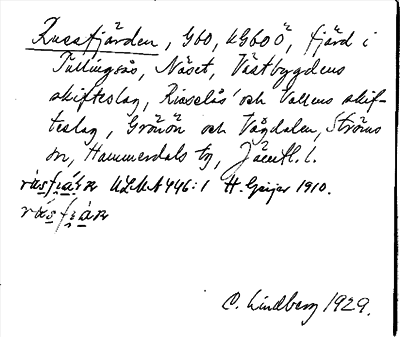 Russfjärden, Gbo, LGboÖ, fjärd i
Tullingsås, Näset, Västbygdens
skifteslag, Risselås' och Vallens skif-
teslag, Grönön och Vågdalen, Ströms
sn, Hammerdals tg, Jämtl. l.
ULMA 446:1 H. Geijer 1910.
C. Lindberg 1929.